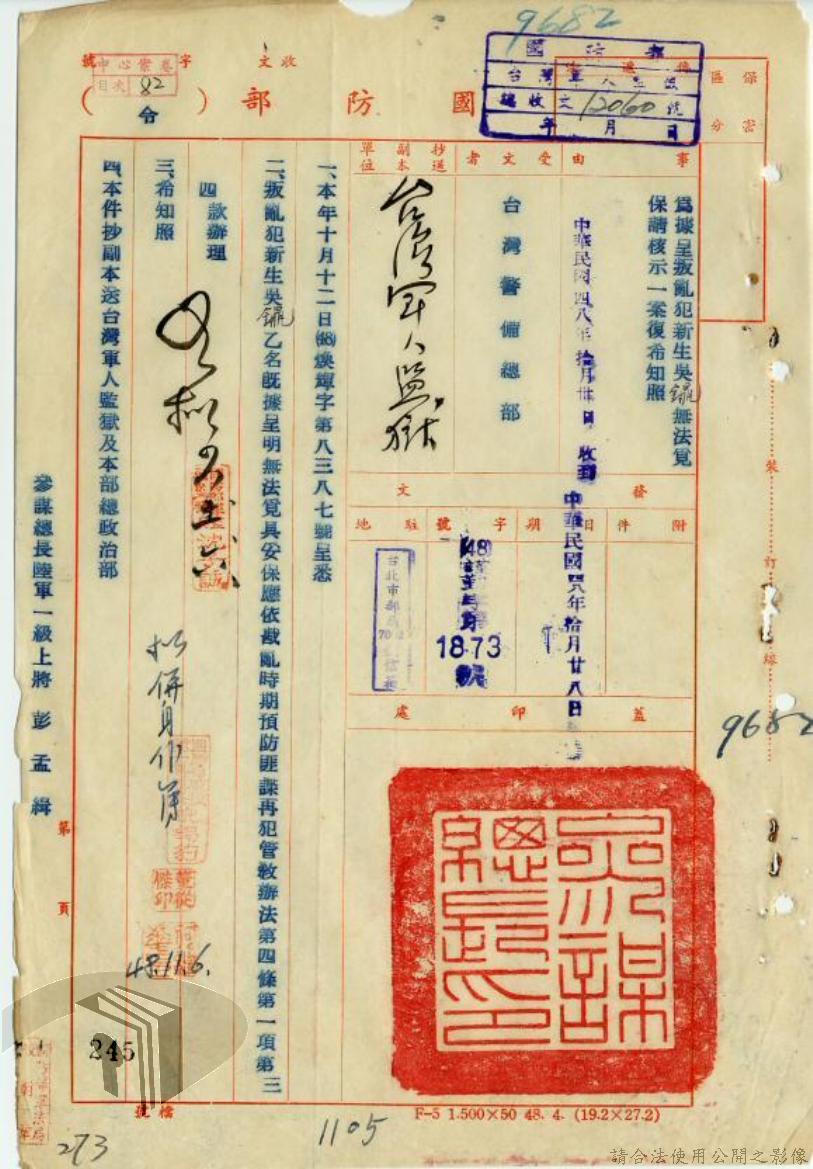 9682
國防部
台灣軍人監獄
總收文12060號
年月日
保密區分
收文字號
中心案卷
目次 82
國防部(令)
事由
受文者
抄送副本單位
為據呈叛亂犯新生吳鏞無法覓
保請核示一案復希知照
中華民國四八年拾月卅日收到
台灣警備總部
台灣軍人監獄
發文
附件
日期
字號
駐地
中華民國四八年拾月廿八日
(48)
1873
號
台北市郵政
蓋印處
參謀總長印
一、本年十月十二日(48)煥暐字第八三八七號呈悉
二、叛亂犯新生吳鏞乙名既據呈明無法覓具妥保應依戡亂時期預防匪諜再犯管教辦法第四條第一項第三
四款辦理
三、希知照
四、本件抄副本送台灣軍人監獄及本部總政治部
參謀總長陸軍一級上將 彭孟緝
擬併身份簿
48.11.6.
第 頁
裝訂線
9682
245
檔號
F-5 1.500×50 48. 4. (19.2×27.2)
1105
273
請合法使用公開之影像